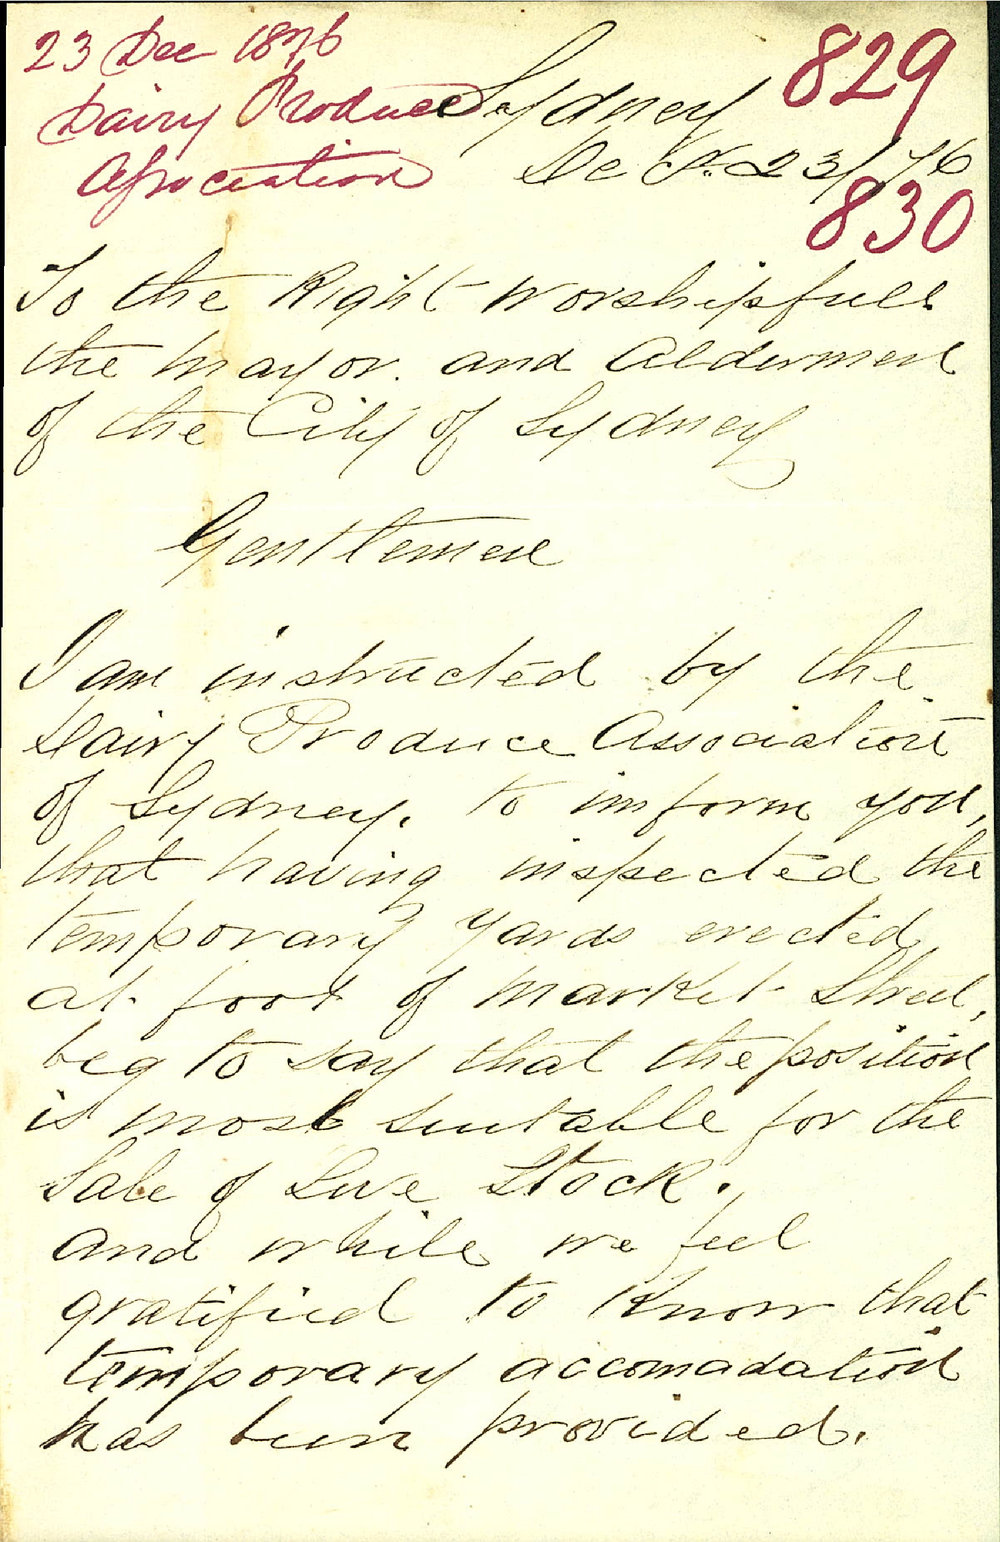 23 Dec 1876
Dairy Produce
Association
829
830
Sydney
Dec r. 23/76
To the Right Worshipfull
the Mayor. and Aldermen
of the City of Sydney
Gentlemen
I am instructed by the
Dairy Produce Association
of Sydney. to imform you,
that having inspected the
temporary yards erected
at foot of Market Street,
beg to say that the position
is most suitable for the
Sale of Live Stock.
And while we feel
gratified to Know that
temporary accomadation
has been provided.